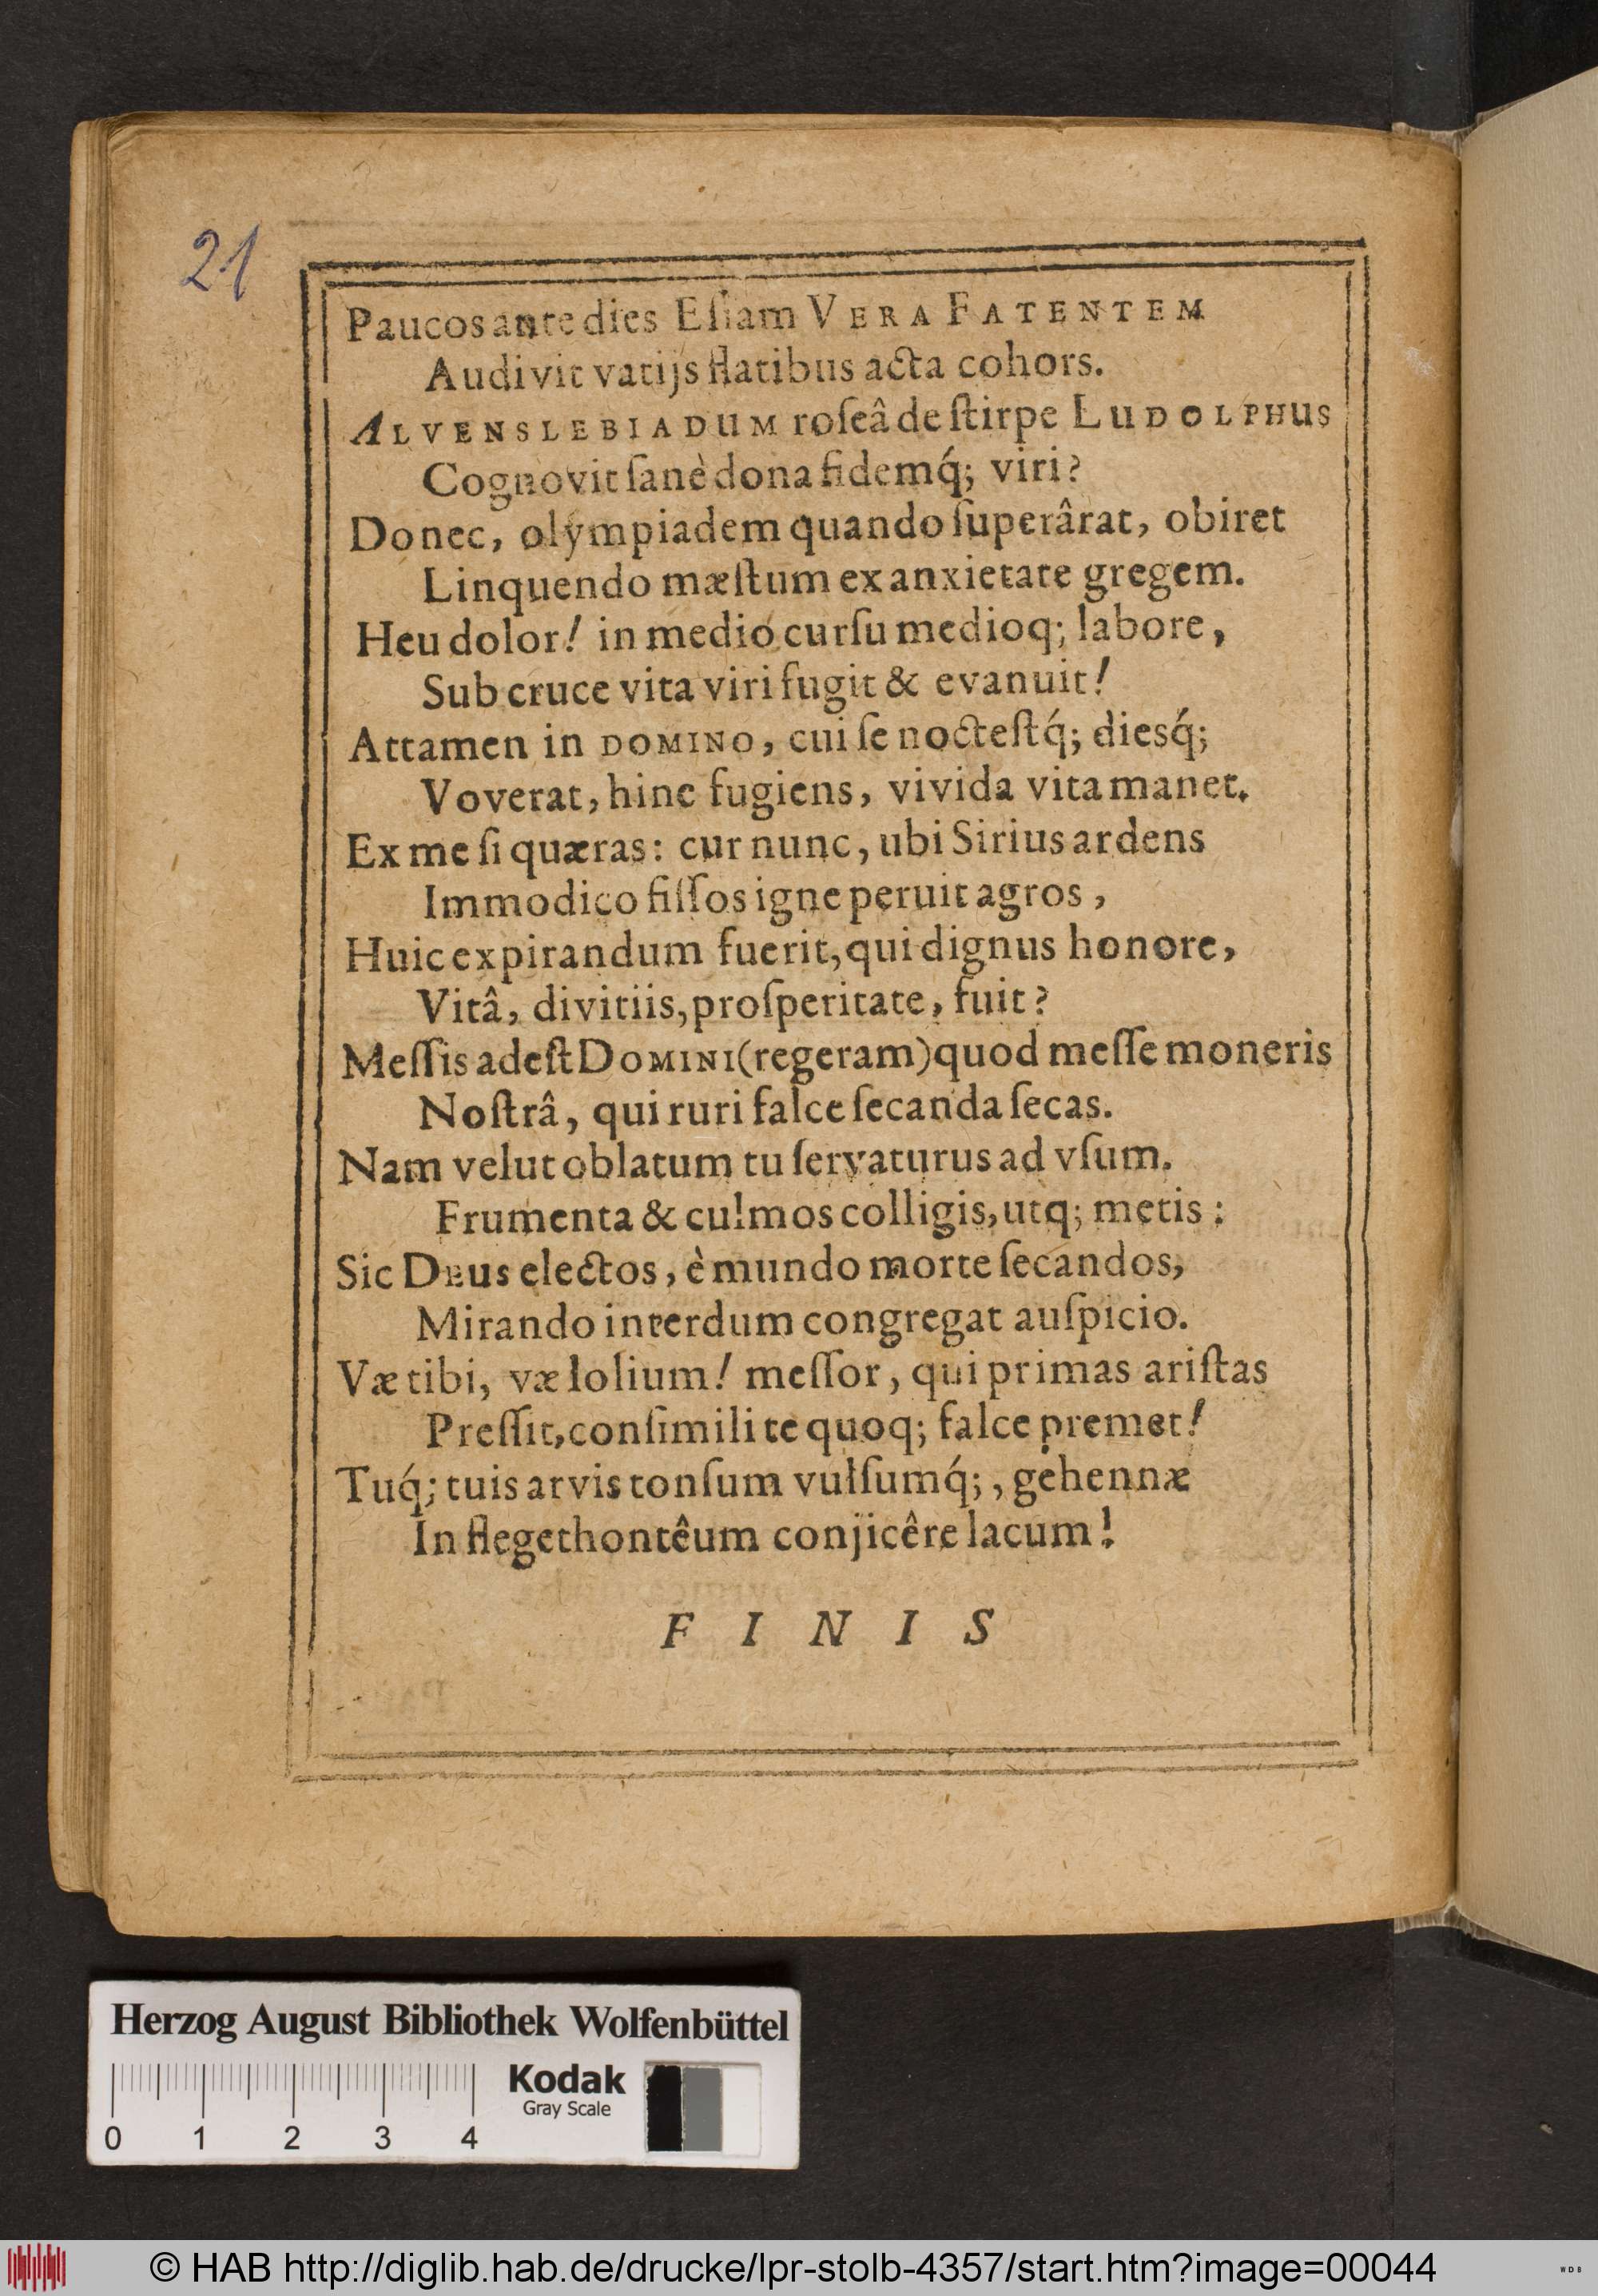 21
Paucos ante dies Eſiam VERA FATENTEM
Audivit vatijs flatibus acta cohors.
ALVENSLEBIADUM roſeâ de ſtirpe LUDOLPHUS
Cognovit ſanè dona fidemq́; viri?
Donec, olympiadem quando ſuperârat, obiret
Linquendo mæſtum ex anxietate gregem.
Heu dolor! in medio curſu medioq; labore,
Sub cruce vita viri fugit & evanuit!
Attamen in DOMINO, cui ſe nocteſtq́; diesq́;
Voverat, hinc fugiens, vivida vita manet.
Ex me ſi quæras: cur nunc, ubi Sirius ardens
Immodico fiſſos igne peruit agros,
Huic expirandum fuerit, qui dignus honore,
Vitâ, divitiis, proſperitate, fuit?
Meſſis adeſt DOMINI (regeram) quod meſſe moneris
Noſtrâ, qui ruri falce ſecanda ſecas.
Nam velut oblatum tu ſervaturus ad vſum.
Frumenta & culmos colligis, utq; metis:
Sic DEUS electos, è mundo morte ſecandos,
Mirando interdum congregat auſpicio.
Væ tibi, væ lolium! meſſor, qui primas ariſtas
Preſſit, conſimili te quoq; falce premet!
Tuq́; tuis arvis tonſum vulſumq́;, gehennæ
In flegethontêum conjicêre lacum!
FINIS
Herzog August Bibliothek Wolfenbüttel
0 1 2 3 4
Kodak
Gray Scale
© HAB http://diglib.hab.de/drucke/lpr-stolb-4357/start.htm?image=00044
WDB